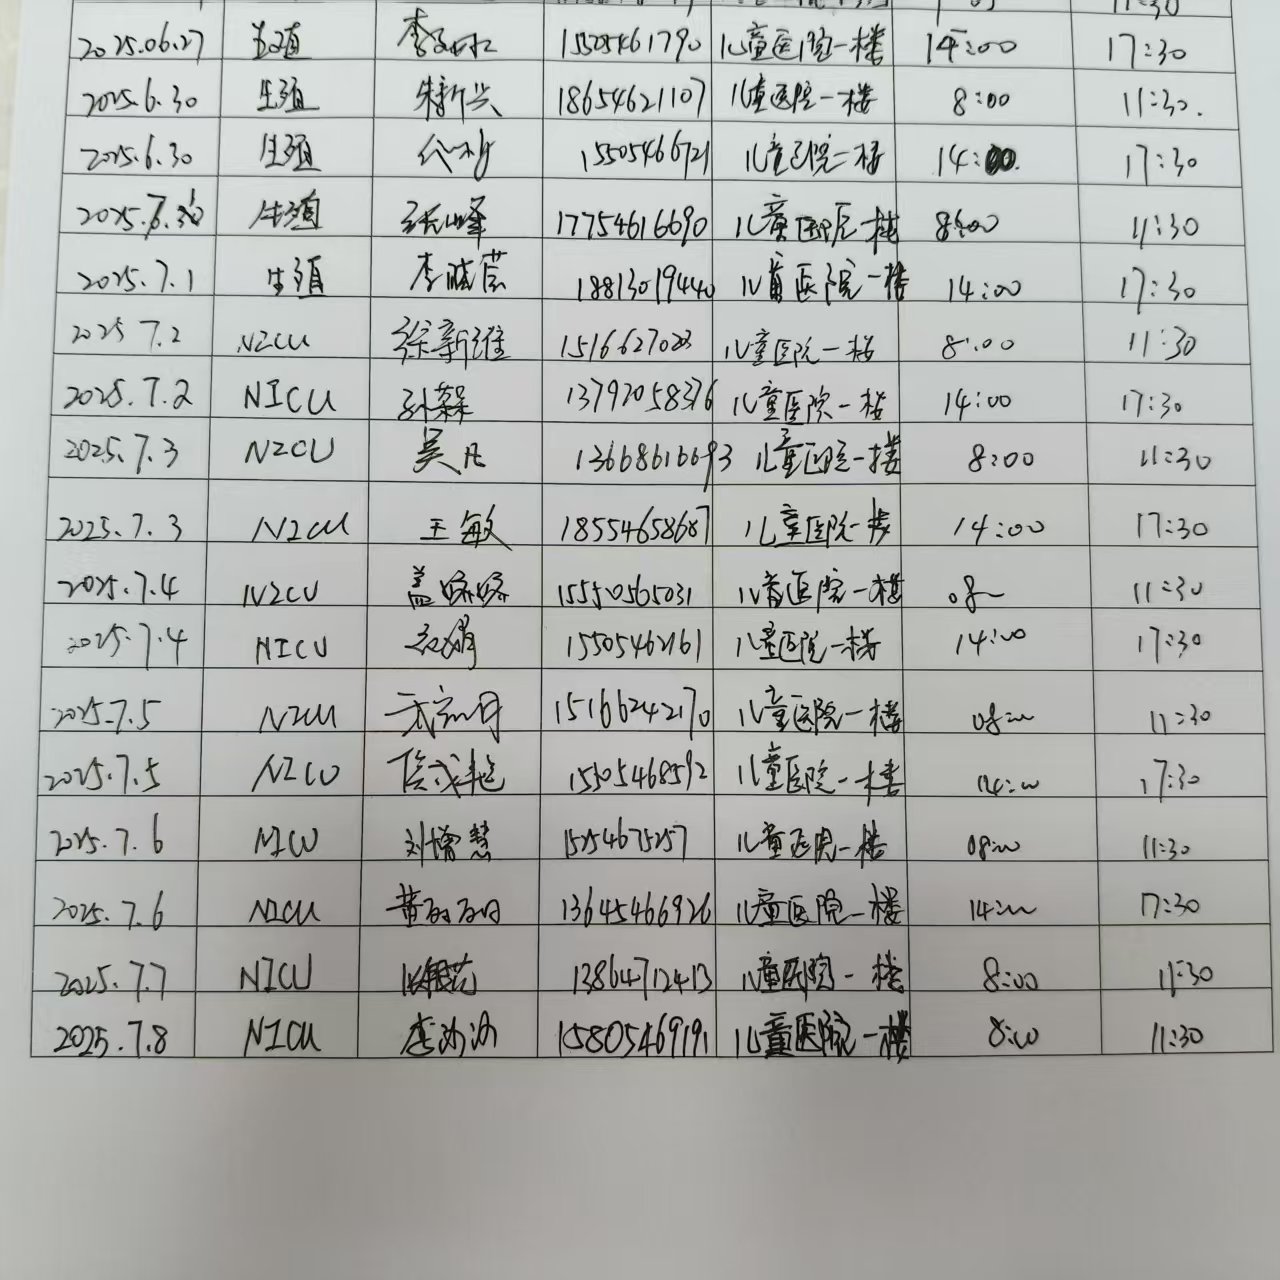 11:30
2025.06.27 生殖 李 15505461790 儿童医院一楼 14:00 17:30
2025.6.30 生殖 朱新兴 18654621107 儿童医院一楼 8:00 11:30.
2025.6.30 生殖 15505466721 儿童医院一楼 14:00 17:30
2025.7.1 生殖 张峰 17754616690 儿童医院一楼 8:00 11:30
2025.7.1 生殖 李晓芸 18813019440 儿童医院一楼 14:00 17:30
2025 7.2 NICU 徐新维 儿童医院一楼 8:00 11:30
2025.7.2 NICU 孙 13792058376 儿童医院一楼 14:00 17:30
2025.7.3 NICU 吴凡 13668616693 儿童医院一楼 8:00 11:30
2025.7.3 NICU 王敏 18554658687 儿童医院一楼 14:00 17:30
2025.7.4 NICU 盖 15550565031 儿童医院一楼 11:30
2025.7.4 NICU 15505462161 儿童医院一楼 14:00 17:30
2025.7.5 NICU 15166242170 儿童医院一楼 08:00 11:30
2025.7.5 NICU 15505468592 儿童医院一楼 14:00 17:30
2025.7.6 NICU 刘增慧 15254675257 儿童医院一楼 08:00 11:30
2025.7.6 NICU 黄 13645466926 儿童医院一楼 14:00 17:30
2025.7.7 NICU 13864712413 儿童医院一楼 8:00 11:30
2025.7.8 NICU 李沙沙 15805469191 儿童医院一楼 8:00 11:30